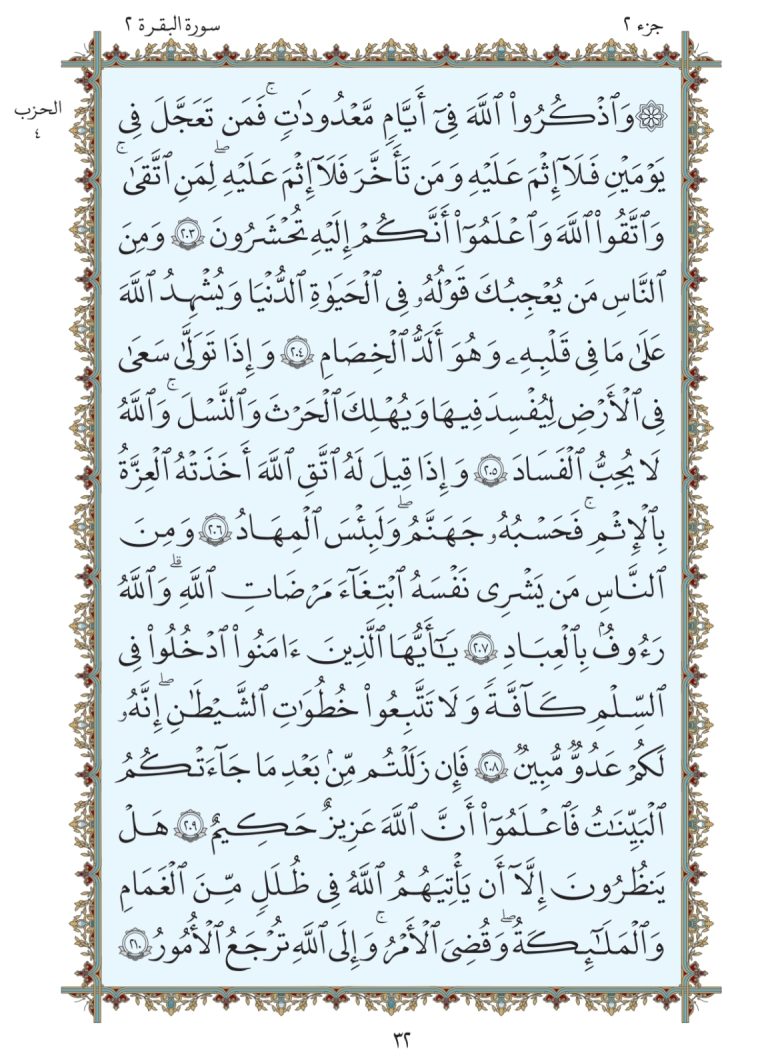 جزء ٢
سورة البقرة ٢
الحزب
٤
۞ وَٱذۡكُرُواْ ٱللَّهَ فِيٓ أَيَّامٖ مَّعۡدُودَٰتٖۚ فَمَن تَعَجَّلَ فِي
يَوۡمَيۡنِ فَلَآ إِثۡمَ عَلَيۡهِ وَمَن تَأَخَّرَ فَلَآ إِثۡمَ عَلَيۡهِۖ لِمَنِ ٱتَّقَىٰۚ
وَٱتَّقُواْ ٱللَّهَ وَٱعۡلَمُوٓاْ أَنَّكُمۡ إِلَيۡهِ تُحۡشَرُونَ ٢٠٣ وَمِنَ
ٱلنَّاسِ مَن يُعۡجِبُكَ قَوۡلُهُۥ فِي ٱلۡحَيَوٰةِ ٱلدُّنۡيَا وَيُشۡهِدُ ٱللَّهَ
عَلَىٰ مَا فِي قَلۡبِهِۦ وَهُوَ أَلَدُّ ٱلۡخِصَامِ ٢٠٤ وَإِذَا تَوَلَّىٰ سَعَىٰ
فِي ٱلۡأَرۡضِ لِيُفۡسِدَ فِيهَا وَيُهۡلِكَ ٱلۡحَرۡثَ وَٱلنَّسۡلَۚ وَٱللَّهُ
لَا يُحِبُّ ٱلۡفَسَادَ ٢٠٥ وَإِذَا قِيلَ لَهُ ٱتَّقِ ٱللَّهَ أَخَذَتۡهُ ٱلۡعِزَّةُ
بِٱلۡإِثۡمِۚ فَحَسۡبُهُۥ جَهَنَّمُۖ وَلَبِئۡسَ ٱلۡمِهَادُ ٢٠٦ وَمِنَ
ٱلنَّاسِ مَن يَشۡرِي نَفۡسَهُ ٱبۡتِغَآءَ مَرۡضَاتِ ٱللَّهِۚ وَٱللَّهُ
رَءُوفُۢ بِٱلۡعِبَادِ ٢٠٧ يَٰٓأَيُّهَا ٱلَّذِينَ ءَامَنُواْ ٱدۡخُلُواْ فِي
ٱلسِّلۡمِ كَآفَّةٗ وَلَا تَتَّبِعُواْ خُطُوَٰتِ ٱلشَّيۡطَٰنِۖ إِنَّهُۥ
لَكُمۡ عَدُوّٞ مُّبِينٞ ٢٠٨ فَإِن زَلَلۡتُم مِّنۢ بَعۡدِ مَا جَآءَتۡكُمُ
ٱلۡبَيِّنَٰتُ فَٱعۡلَمُوٓاْ أَنَّ ٱللَّهَ عَزِيزٌ حَكِيمٌ ٢٠٩ هَلۡ
يَنظُرُونَ إِلَّآ أَن يَأۡتِيَهُمُ ٱللَّهُ فِي ظُلَلٖ مِّنَ ٱلۡغَمَامِ
وَٱلۡمَلَٰٓئِكَةُ وَقُضِيَ ٱلۡأَمۡرُۚ وَإِلَى ٱللَّهِ تُرۡجَعُ ٱلۡأُمُورُ ٢١٠
٣٢